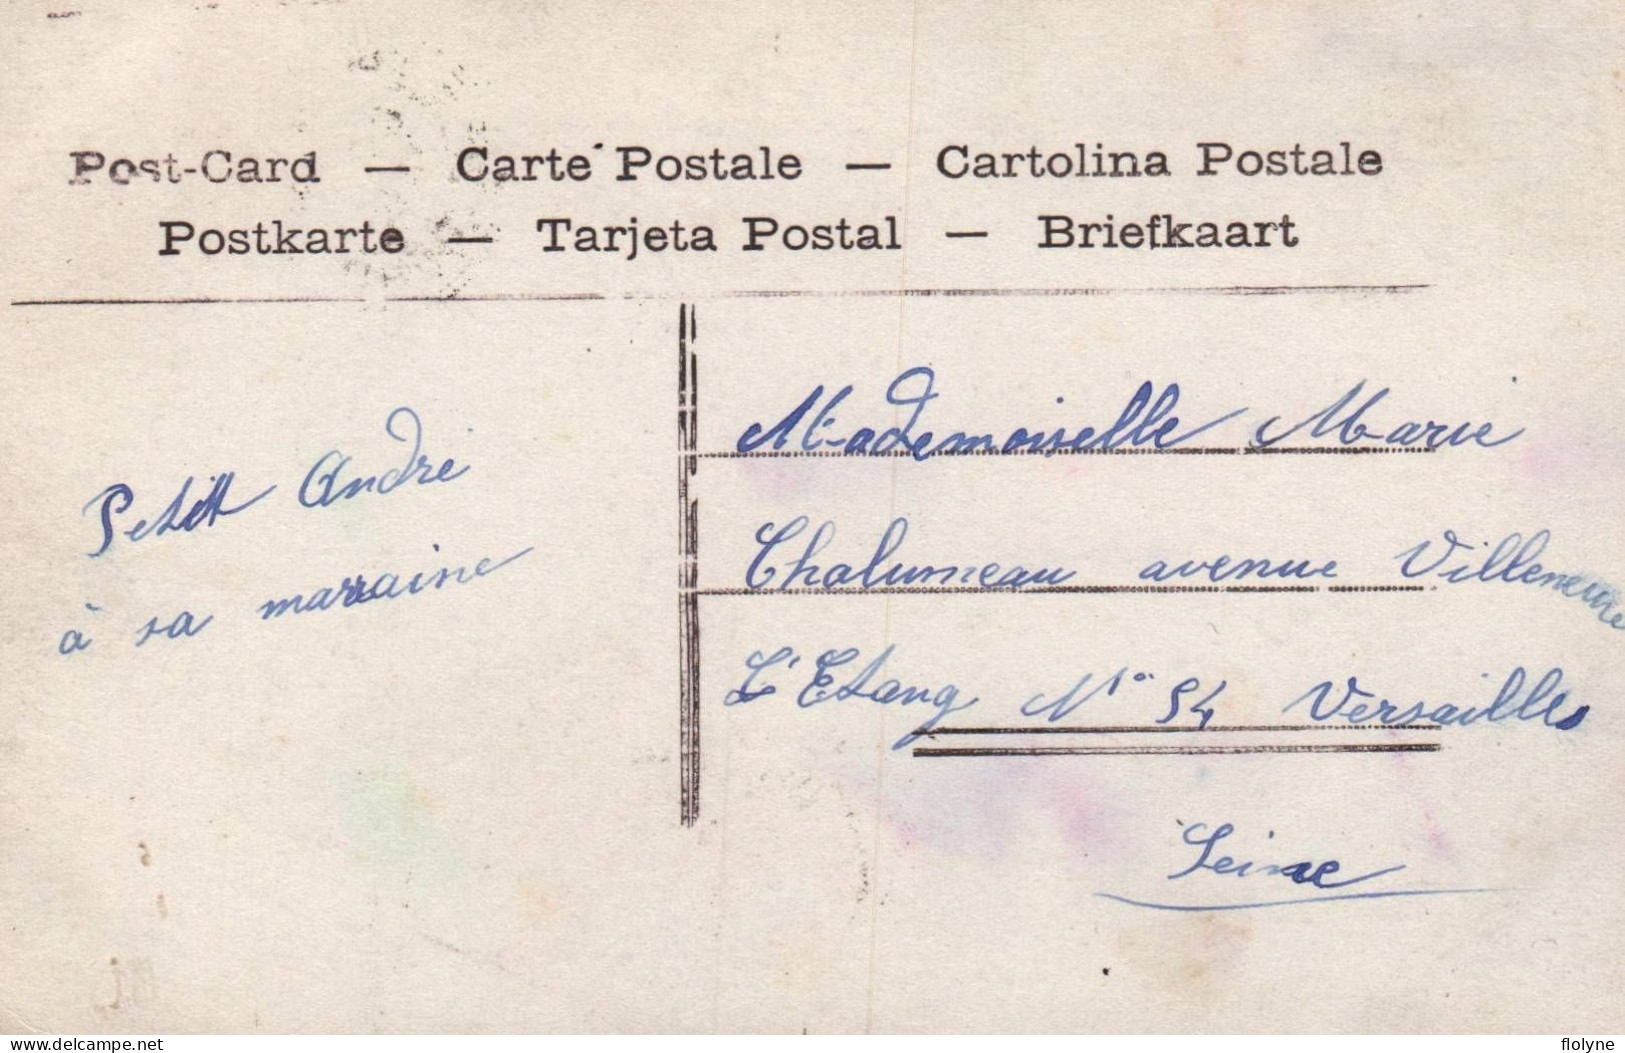 Post-Card — Carte Postale — Cartolina Postale
Postkarte — Tarjeta Postal — Briefkaart
Petit André
à sa marraine
Mademoiselle Marie
Chalumeau avenue Villeneuve
L'Etang N° 54 Versailles
Seine
delcampe.net
flolyne